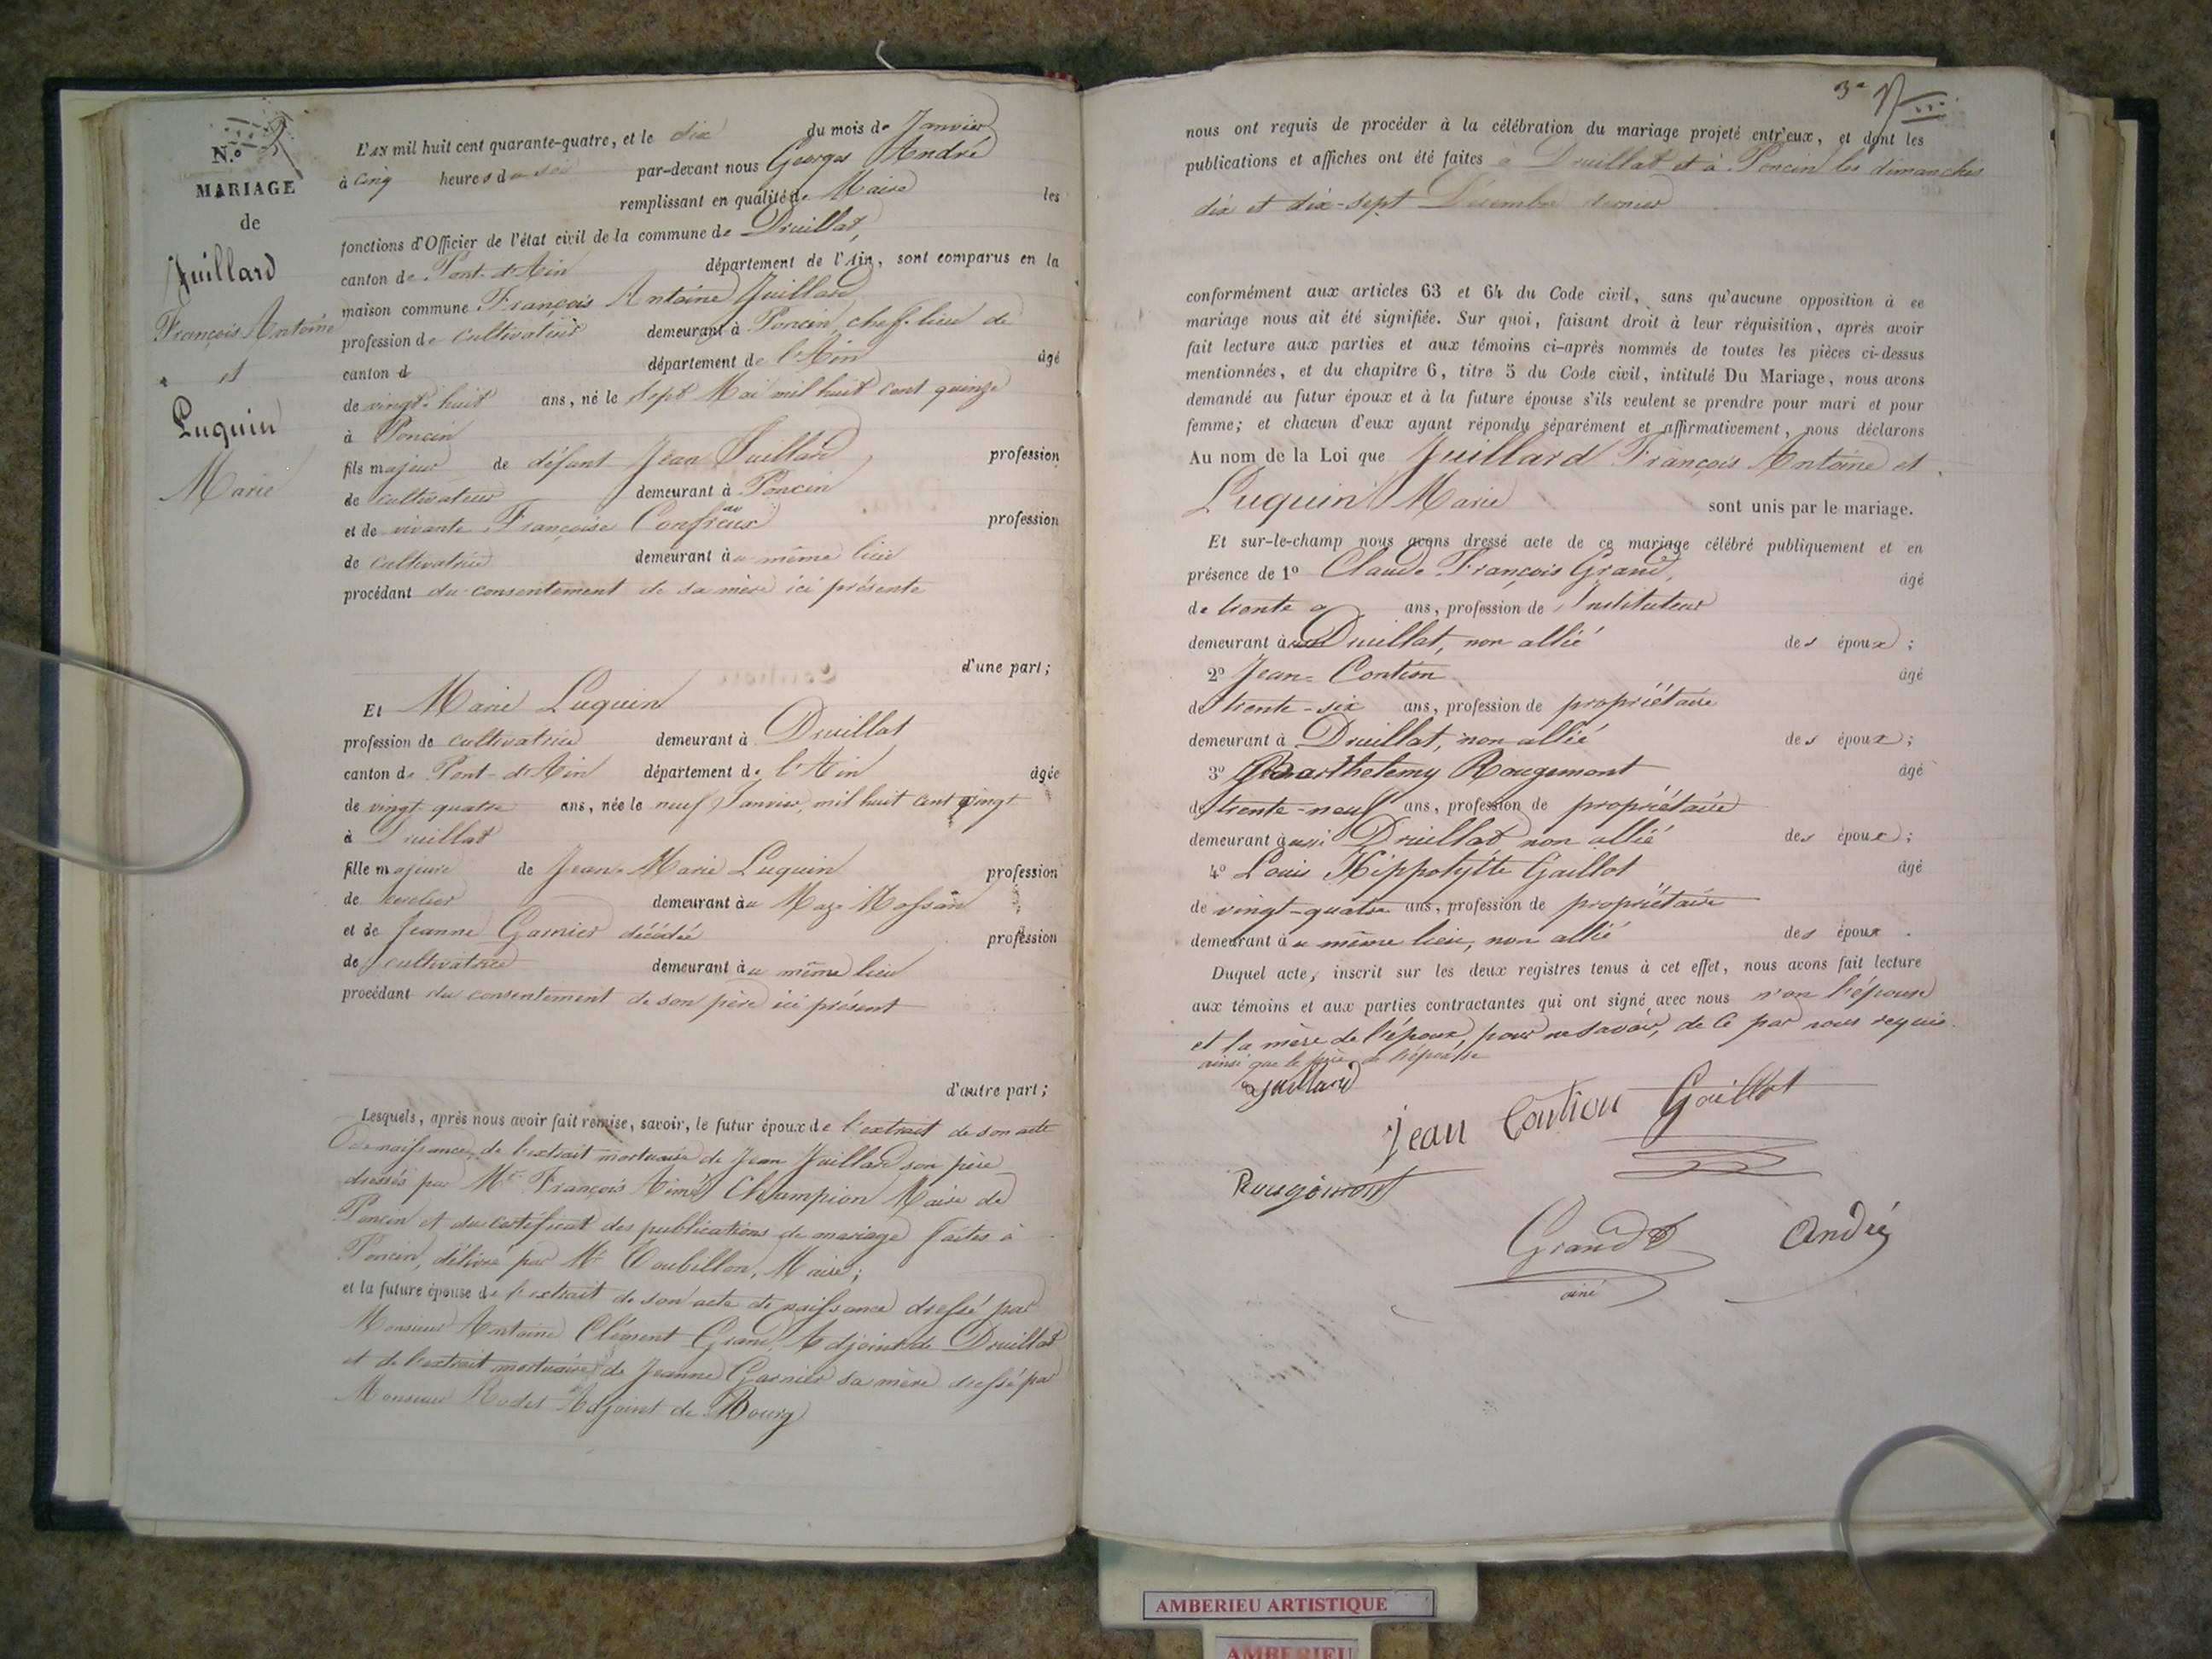 N.º 2
MARIAGE
de
Juillard
François Antoine
et
Luquin
Marie
L'AN mil huit cent quarante-quatre, et le dix du mois de Janvier
à cinq heures du soir par-devant nous Georges André
remplissant en qualité de Maire les
fonctions d'Officier de l'état civil de la commune de Druillat,
canton de Pont-d'Ain département de l'Ain, sont comparus en la
maison commune François Antoine Juillard
profession de cultivateur demeurant à Poncin, chef-lieu de
canton d département de l'Ain âgé
de vingt-huit ans, né le sept Mai mil huit cent quinze
à Poncin
fils majeur de défunt Jean Juillard, profession
de cultivateur demeurant à Poncin
et de vivante Françoise profession
de cultivatrice demeurant au même lieu
procédant du consentement de sa mère ici présente
d'une part;
Et Marie Luquin
profession de cultivatrice demeurant à Druillat
canton de Pont-d'Ain département de l'Ain âgée
de vingt-quatre ans, née le neuf Janvier, mil huit cent vingt
à Druillat
fille majeure de Jean-Marie Luquin profession
de demeurant au
et de Jeanne Garnier décédée profession
de cultivatrice demeurant au même lieu
procédant du consentement de son père ici présent
d'autre part;
Lesquels, après nous avoir fait remise, savoir, le futur époux de l'extrait de son acte
de naissance, de l'extrait mortuaire de Jean Juillard son père
dressés par Mr. François Aimé Champion Maire de
Poncin et du certificat des publications de mariage faites à
Poncin, délivré par Mr Maire;
et la future épouse de l'extrait de son acte de naissance dressé par
Monsieur Antoine Clément Grand, Adjoint de Druillat
et de l'extrait mortuaire de Jeanne Garnier sa mère dressé par
Monsieur Rodet Adjoint de Bourg
3e
nous ont requis de procéder à la célébration du mariage projeté entr'eux, et dont les
publications et affiches ont été faites à Druillat et à Poncin les dimanches
dix et dix-sept Décembre dernier
conformément aux articles 63 et 64 du Code civil, sans qu'aucune opposition à ce
mariage nous ait été signifiée. Sur quoi, faisant droit à leur réquisition, après avoir
fait lecture aux parties et aux témoins ci-après nommés de toutes les pièces ci-dessus
mentionnées, et du chapitre 6, titre 5 du Code civil, intitulé Du Mariage, nous avons
demandé au futur époux et à la future épouse s'ils veulent se prendre pour mari et pour
femme; et chacun d'eux ayant répondu séparément et affirmativement, nous déclarons
Au nom de la Loi que Juillard François Antoine et
Luquin Marie sont unis par le mariage.
Et sur-le-champ nous avons dressé acte de ce mariage célébré publiquement et en
présence de 1º Claude François Grand, âgé
de trente ans, profession de Instituteur
demeurant à Druillat, non allié des époux;
2º Jean Contion âgé
de trente-six ans, profession de propriétaire
demeurant à Druillat, non allié des époux;
3º Barthelemy Rougemont âgé
de trente-neuf ans, profession de propriétaire
demeurant aussi Druillat, non allié des époux;
4º Louis Hippolytte Gaillot âgé
de vingt-quatre ans, profession de propriétaire
demeurant au même lieu, non allié des époux.
Duquel acte, inscrit sur les deux registres tenus à cet effet, nous avons fait lecture
aux témoins et aux parties contractantes qui ont signé avec nous non l'épouse
et la mère de l'époux, pour ne savoir, de ce par nous requis
ainsi que le père de l'épouse
Juillard
Jean Contion Gaillot
Rougemont
Grand André
ainé
AMBERIEU ARTISTIQUE
AMBERIEU